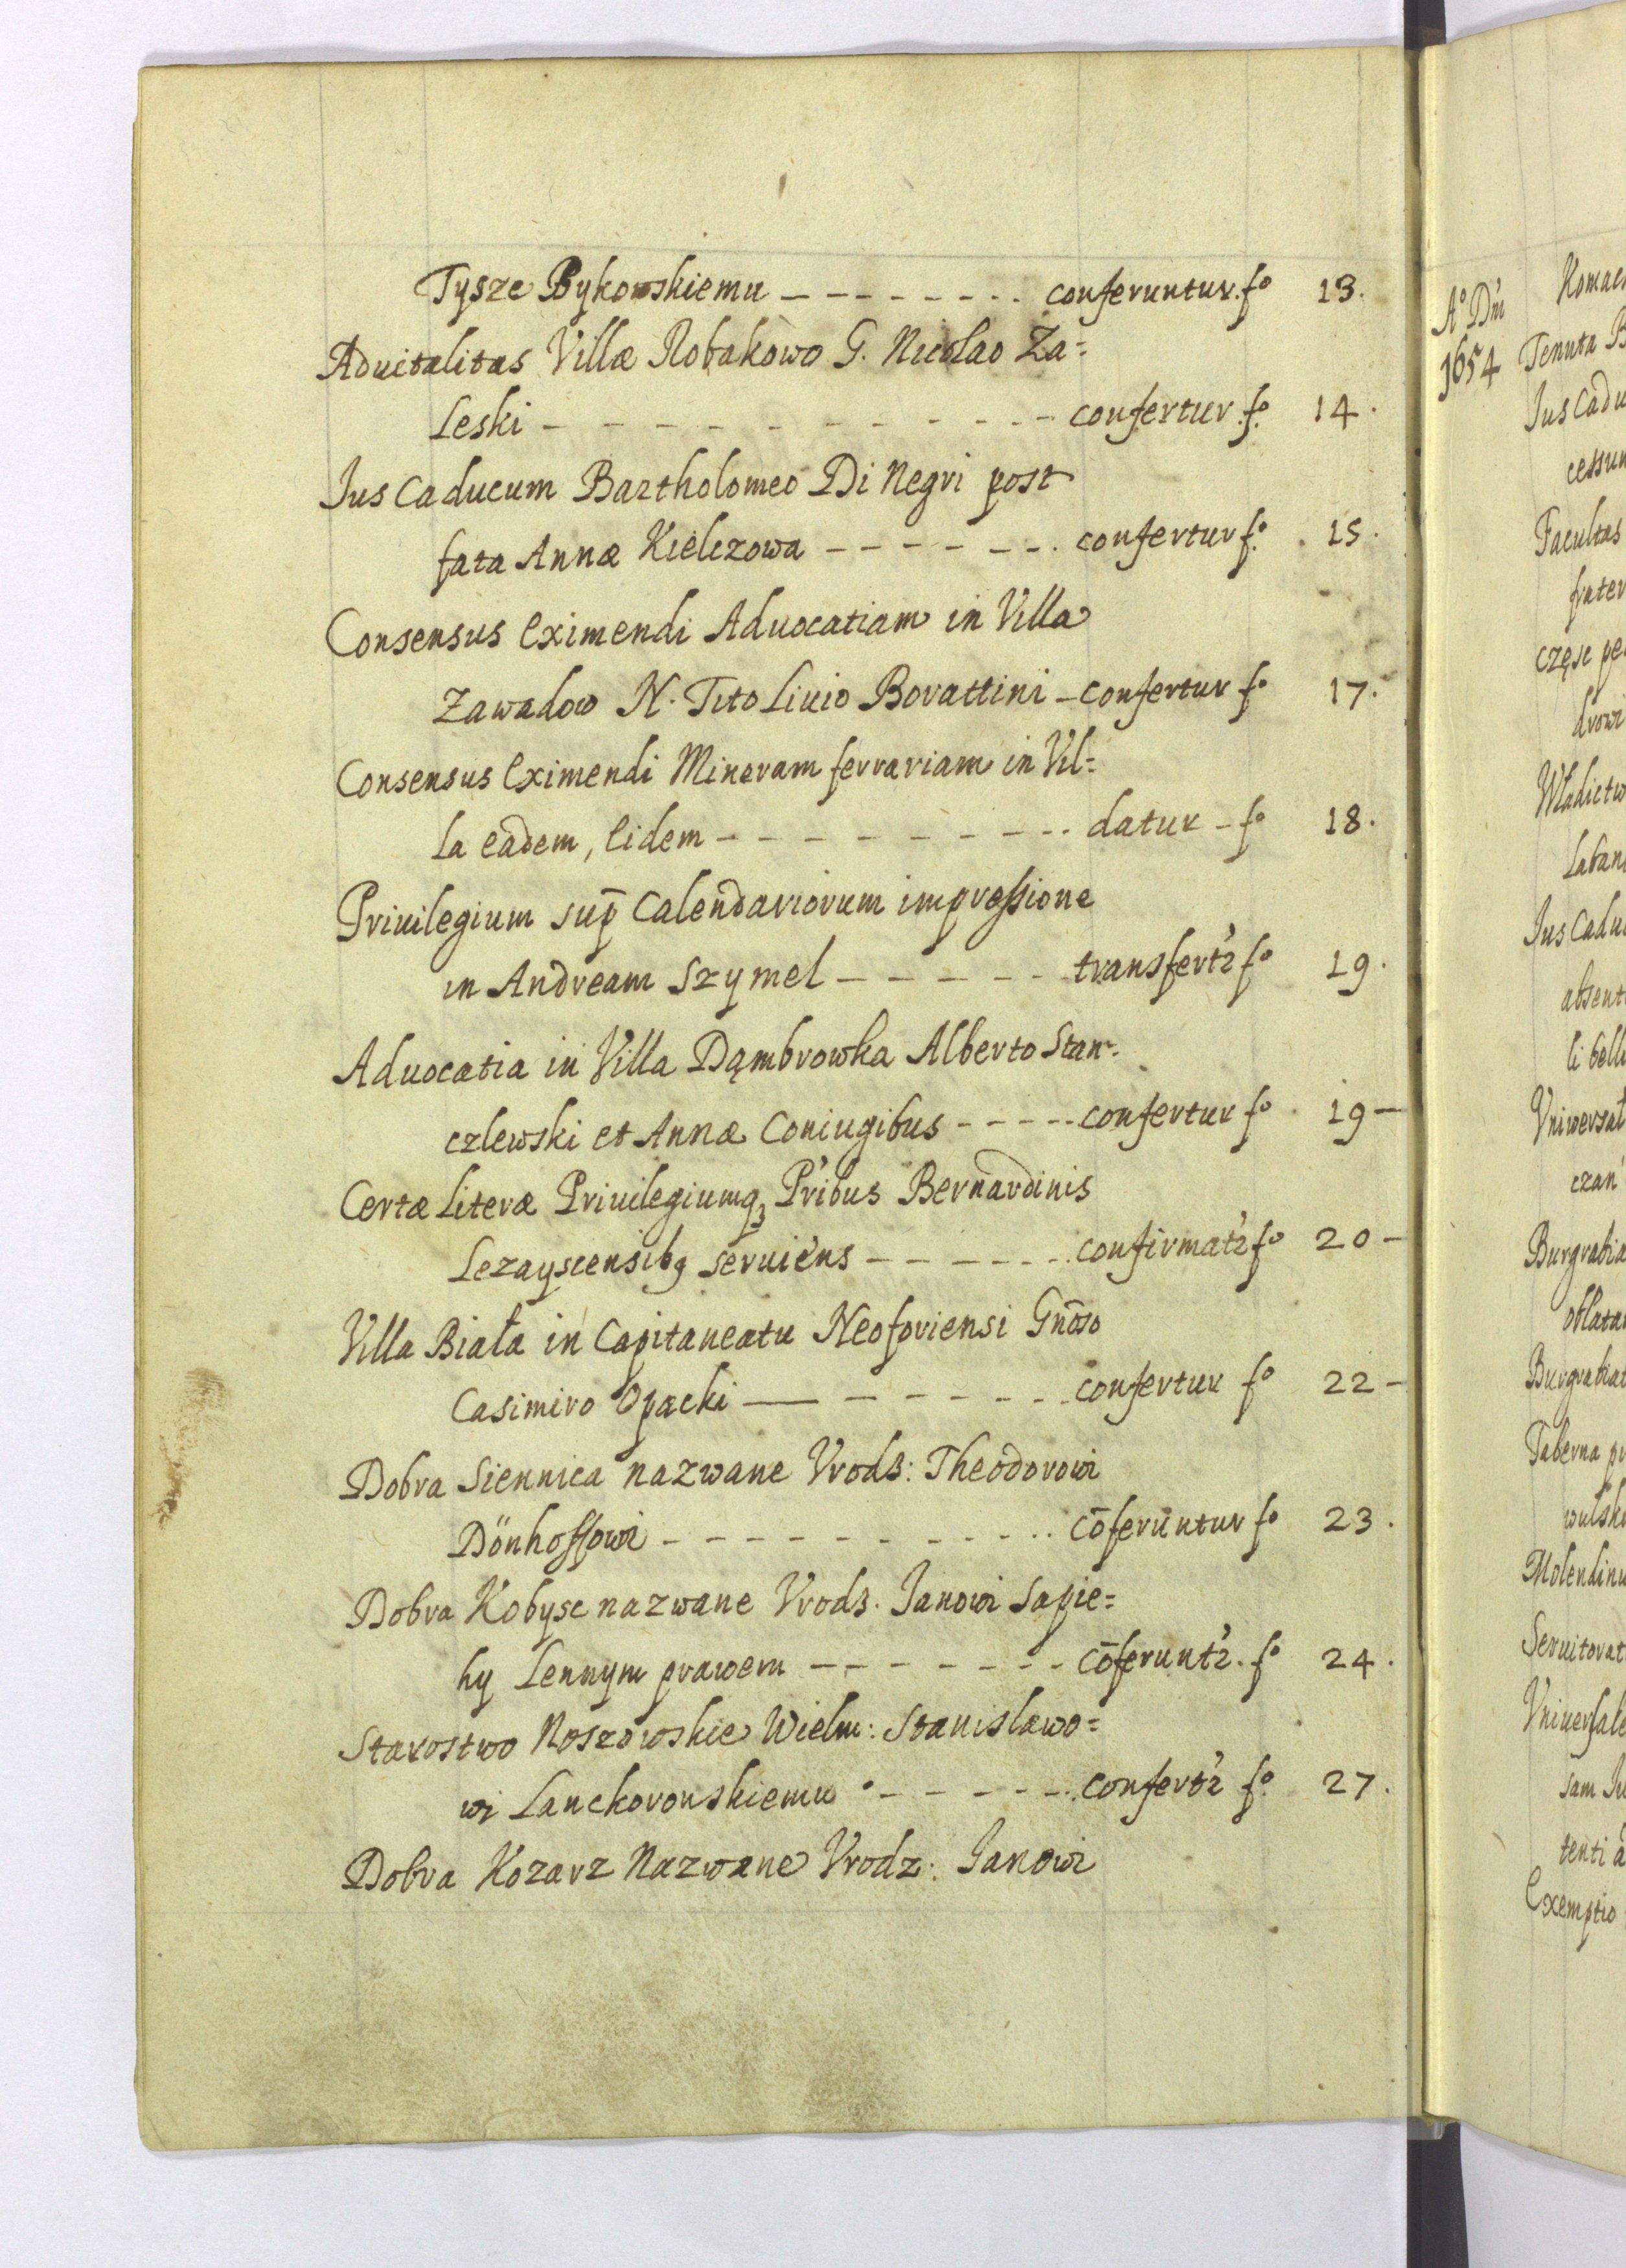 Tysze Bykowskiemu - - - - - - - - conferuntur. fo 13.
Aduitalitas Villæ Robakowo G. Nicolao Za=
leski - - - - - - - - - - - - confertur. fo 14.
Jus Caducum Bartholomeo Di Negri post
fata Annæ Kielczowa - - - - - - - confertur fo. 15.
Consensus Eximendi Aduocatiam in Villa
Zawadow N. Tito Liuio Borattini - confertur fo 17.
Consensus Eximendi Mineram ferrariam in Vil=
la eadem, Eidem - - - - - - - - - - datur - fo 18.
Priuilegium sup̄ Calendariorum impressione
in Andream Szymel - - - - - - transfert'r fo 19.
Aduocatia in Villa Dąmbrowka Alberto Stan=
czlewski et Annæ Coniugibus - - - - - confertur fo 19 -
Certæ Literæ Priuilegiumqꝫ P'ribus Bernardinis
Lezayscensibꝯ seruiens - - - - - - - confirmat'r fo 20 -
Villa Biała in Capitaneatu Neoforiensi Gnōso
Casimiro Opacki - - - - - - - confertur fo 22 -
Dobra Siennica nazwane Vrodz: Theodorowi
Dönhoffowi - - - - - - - - - - - cōferuntur fo 23.
Dobra Kobysc nazwane Vrodz. Janowi Sapie=
hy Lennym prawem - - - - - - - - cōferunt'r. fo 24.
Starostwo Noszowskie Wielm: Stanislawo=
wi Lanckoronskiemu - - - - - - confert'r fo. 27.
Dobra Kozarz Nazwane Vrodz: Janowi
Ao Dn'i
1654
Tenuta
Jus Cadu
Facultas
częsc
Jus Cadu
li bell
czan
Burgrabia
Burgrabiat
Taberna
Molendinu
Seruitorat
Vniuersale
sam Ju
tenti
Exemptio